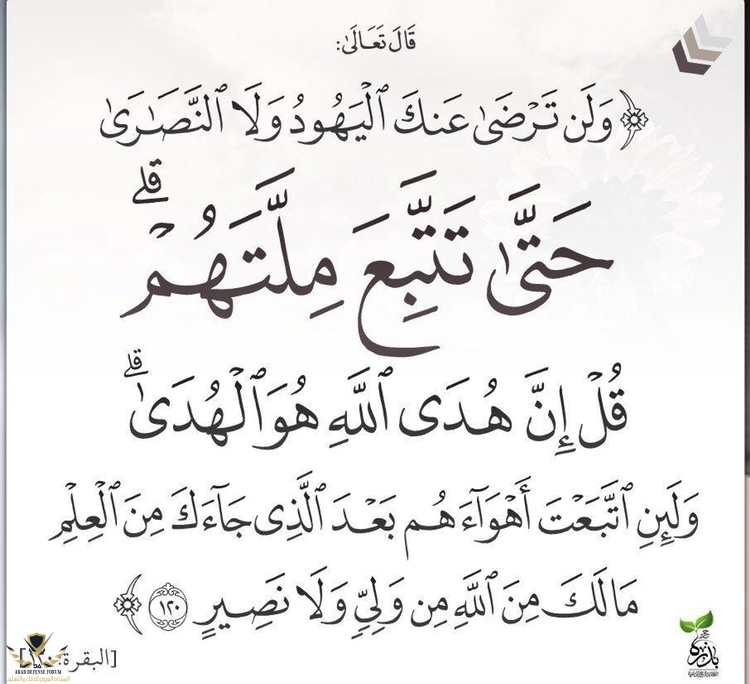 قَالَ تَعَالَىٰ:
﴿ وَلَن تَرۡضَىٰ عَنكَ ٱلۡيَهُودُ وَلَا ٱلنَّصَٰرَىٰ
حَتَّىٰ تَتَّبِعَ مِلَّتَهُمۡۗ
قُلۡ إِنَّ هُدَى ٱللَّهِ هُوَ ٱلۡهُدَىٰۗ
وَلَئِنِ ٱتَّبَعۡتَ أَهۡوَآءَهُم بَعۡدَ ٱلَّذِى جَآءَكَ مِنَ ٱلۡعِلۡمِ
مَا لَكَ مِنَ ٱللَّهِ مِن وَلِىٍّ وَلَا نَصِيرٍ ١٢٠ ﴾
[البقرة:
ARAB DEFENSE FORUM